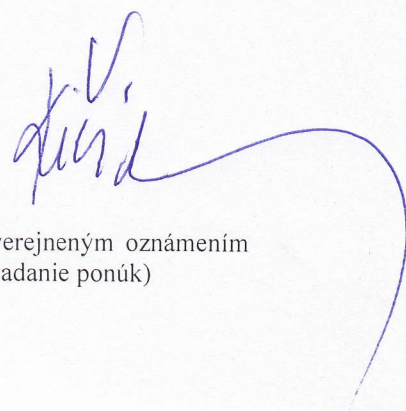 verejneným oznámením
adanie ponúk)